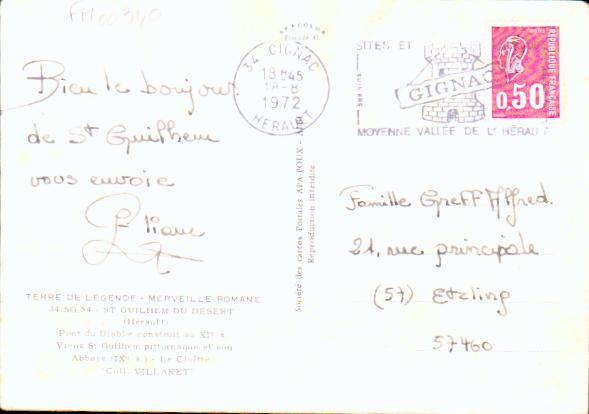 FM00340
SPACOLOR
34 GIGNAC
18H45
18-8
1972
HERAULT
SITES ET
ses vins
GIGNAC
MOYENNE VALLÉE DE L'HÉRAULT
REPUBLIQUE FRANÇAISE
0,50
Bien le bonjour
de St Guilhem
vous envoie
Eliane
Famille Greff Alfred.
21, rue principale
(57) Etzling
57460
Société des cartes Postales APA-POUX - ALBI
Reproduction interdite
TERRE DE LEGENDE - MERVEILLE ROMANE
34.SG.54 - ST GUILHEM DU DESERT
(Hérault)
Pont du Diable construit au XIe s.
Vieux St Guilhem pittoresque et son
Abbaye (IXe s.) - Le Cloître
"Coll. VILLARET"